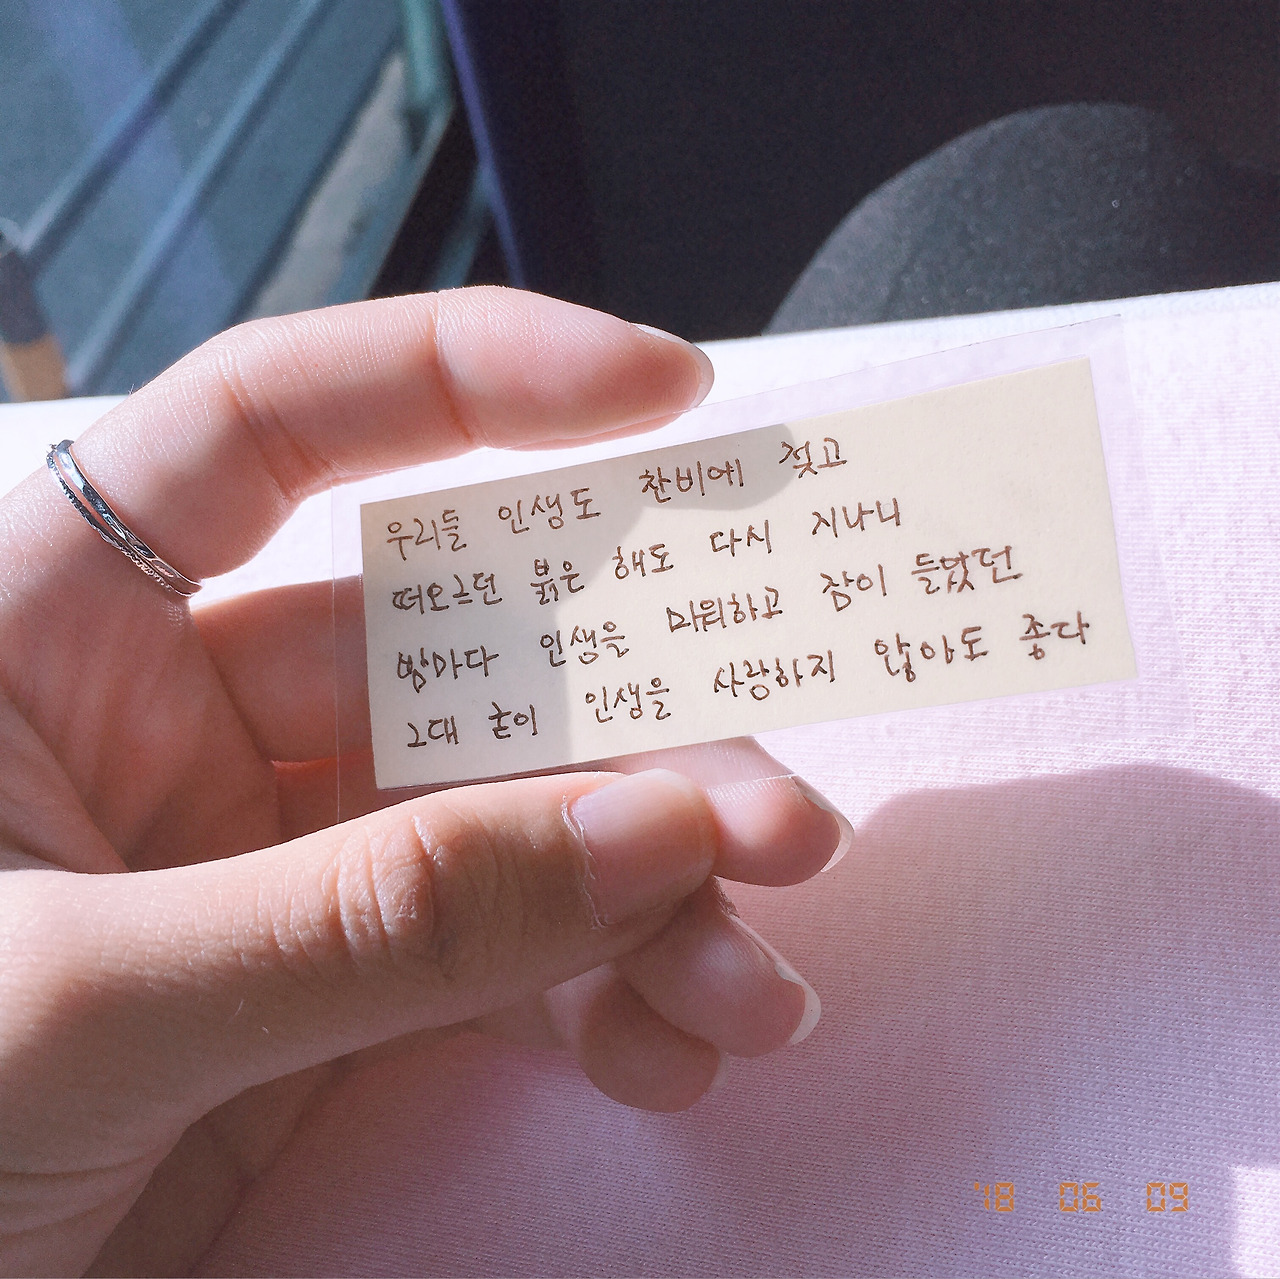 우리들 인생도 찬비에 젖고
떠오르던 붉은 해도 다시 지나니
밤마다 인생을 미워하고 잠이 들었던
그대 굳이 인생을 사랑하지 않아도 좋다
'18 06 09